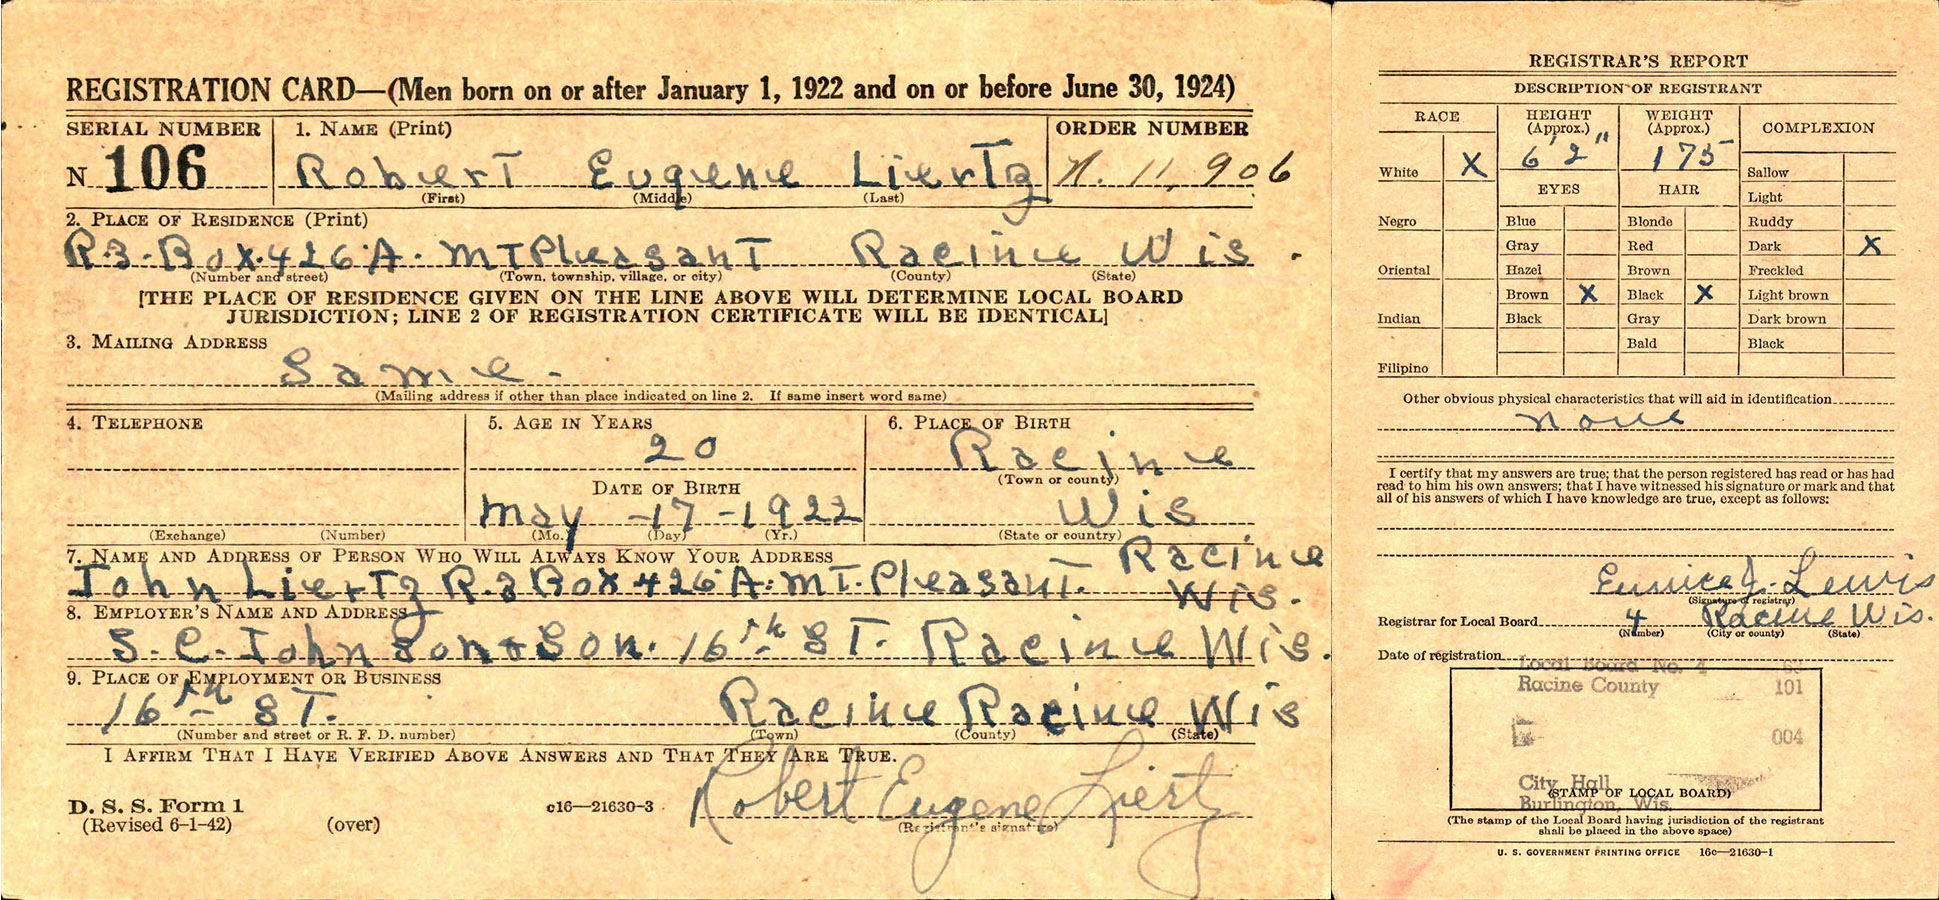 REGISTRATION CARD—(Men born on or after January 1, 1922 and on or before June 30, 1924)
SERIAL NUMBER 1. NAME (Print) ORDER NUMBER
N 106 Robert Eugene Liertz N. 11,906
(First) (Middle) (Last)
2. PLACE OF RESIDENCE (Print)
R.3-Box.426A. MT Pleasant Racine Wis.
(Number and street) (Town, township, village, or city) (County) (State)
[THE PLACE OF RESIDENCE GIVEN ON THE LINE ABOVE WILL DETERMINE LOCAL BOARD
JURISDICTION; LINE 2 OF REGISTRATION CERTIFICATE WILL BE IDENTICAL]
3. MAILING ADDRESS
Same-
(Mailing address if other than place indicated on line 2. If same insert word same)
4. TELEPHONE 5. AGE IN YEARS 6. PLACE OF BIRTH
20 Racine
(Town or county)
DATE OF BIRTH
May -17-1922 Wis
(Exchange) (Number) (Mo.) (Day) (Yr.) (State or country)
7. NAME AND ADDRESS OF PERSON WHO WILL ALWAYS KNOW YOUR ADDRESS
John Liertz R.3 Box 426A. MT. Pleasant. Racine
Wis.
8. EMPLOYER'S NAME AND ADDRESS
S. C. Johnson & Son. 16th ST. Racine Wis.
9. PLACE OF EMPLOYMENT OR BUSINESS
16th ST. Racine Racine Wis
(Number and street or R. F. D. number) (Town) (County) (State)
I AFFIRM THAT I HAVE VERIFIED ABOVE ANSWERS AND THAT THEY ARE TRUE.
Robert Eugene Liertz
D. S. S. Form 1 c16—21630-3
(Revised 6-1-42) (over) (Registrant's signature)
REGISTRAR'S REPORT
DESCRIPTION OF REGISTRANT
RACE HEIGHT (Approx.) WEIGHT (Approx.) COMPLEXION
6'2" 175
White X Sallow
EYES HAIR Light
Negro Blue Blonde Ruddy
Gray Red Dark X
Oriental Hazel Brown Freckled
Brown X Black X Light brown
Indian Black Gray Dark brown
Bald Black
Filipino
Other obvious physical characteristics that will aid in identification
None
I certify that my answers are true; that the person registered has read or has had
read to him his own answers; that I have witnessed his signature or mark and that
all of his answers of which I have knowledge are true, except as follows:
Eunice J. Lewis
(Signature of registrar)
Registrar for Local Board 4 Racine Wis.
(Number) (City or county) (State)
Date of registration
Local Board No. 4
Racine County 101
004
City Hall
(STAMP OF LOCAL BOARD)
Burlington, Wis.
(The stamp of the Local Board having jurisdiction of the registrant
shall be placed in the above space)
U. S. GOVERNMENT PRINTING OFFICE 16c—21630-1